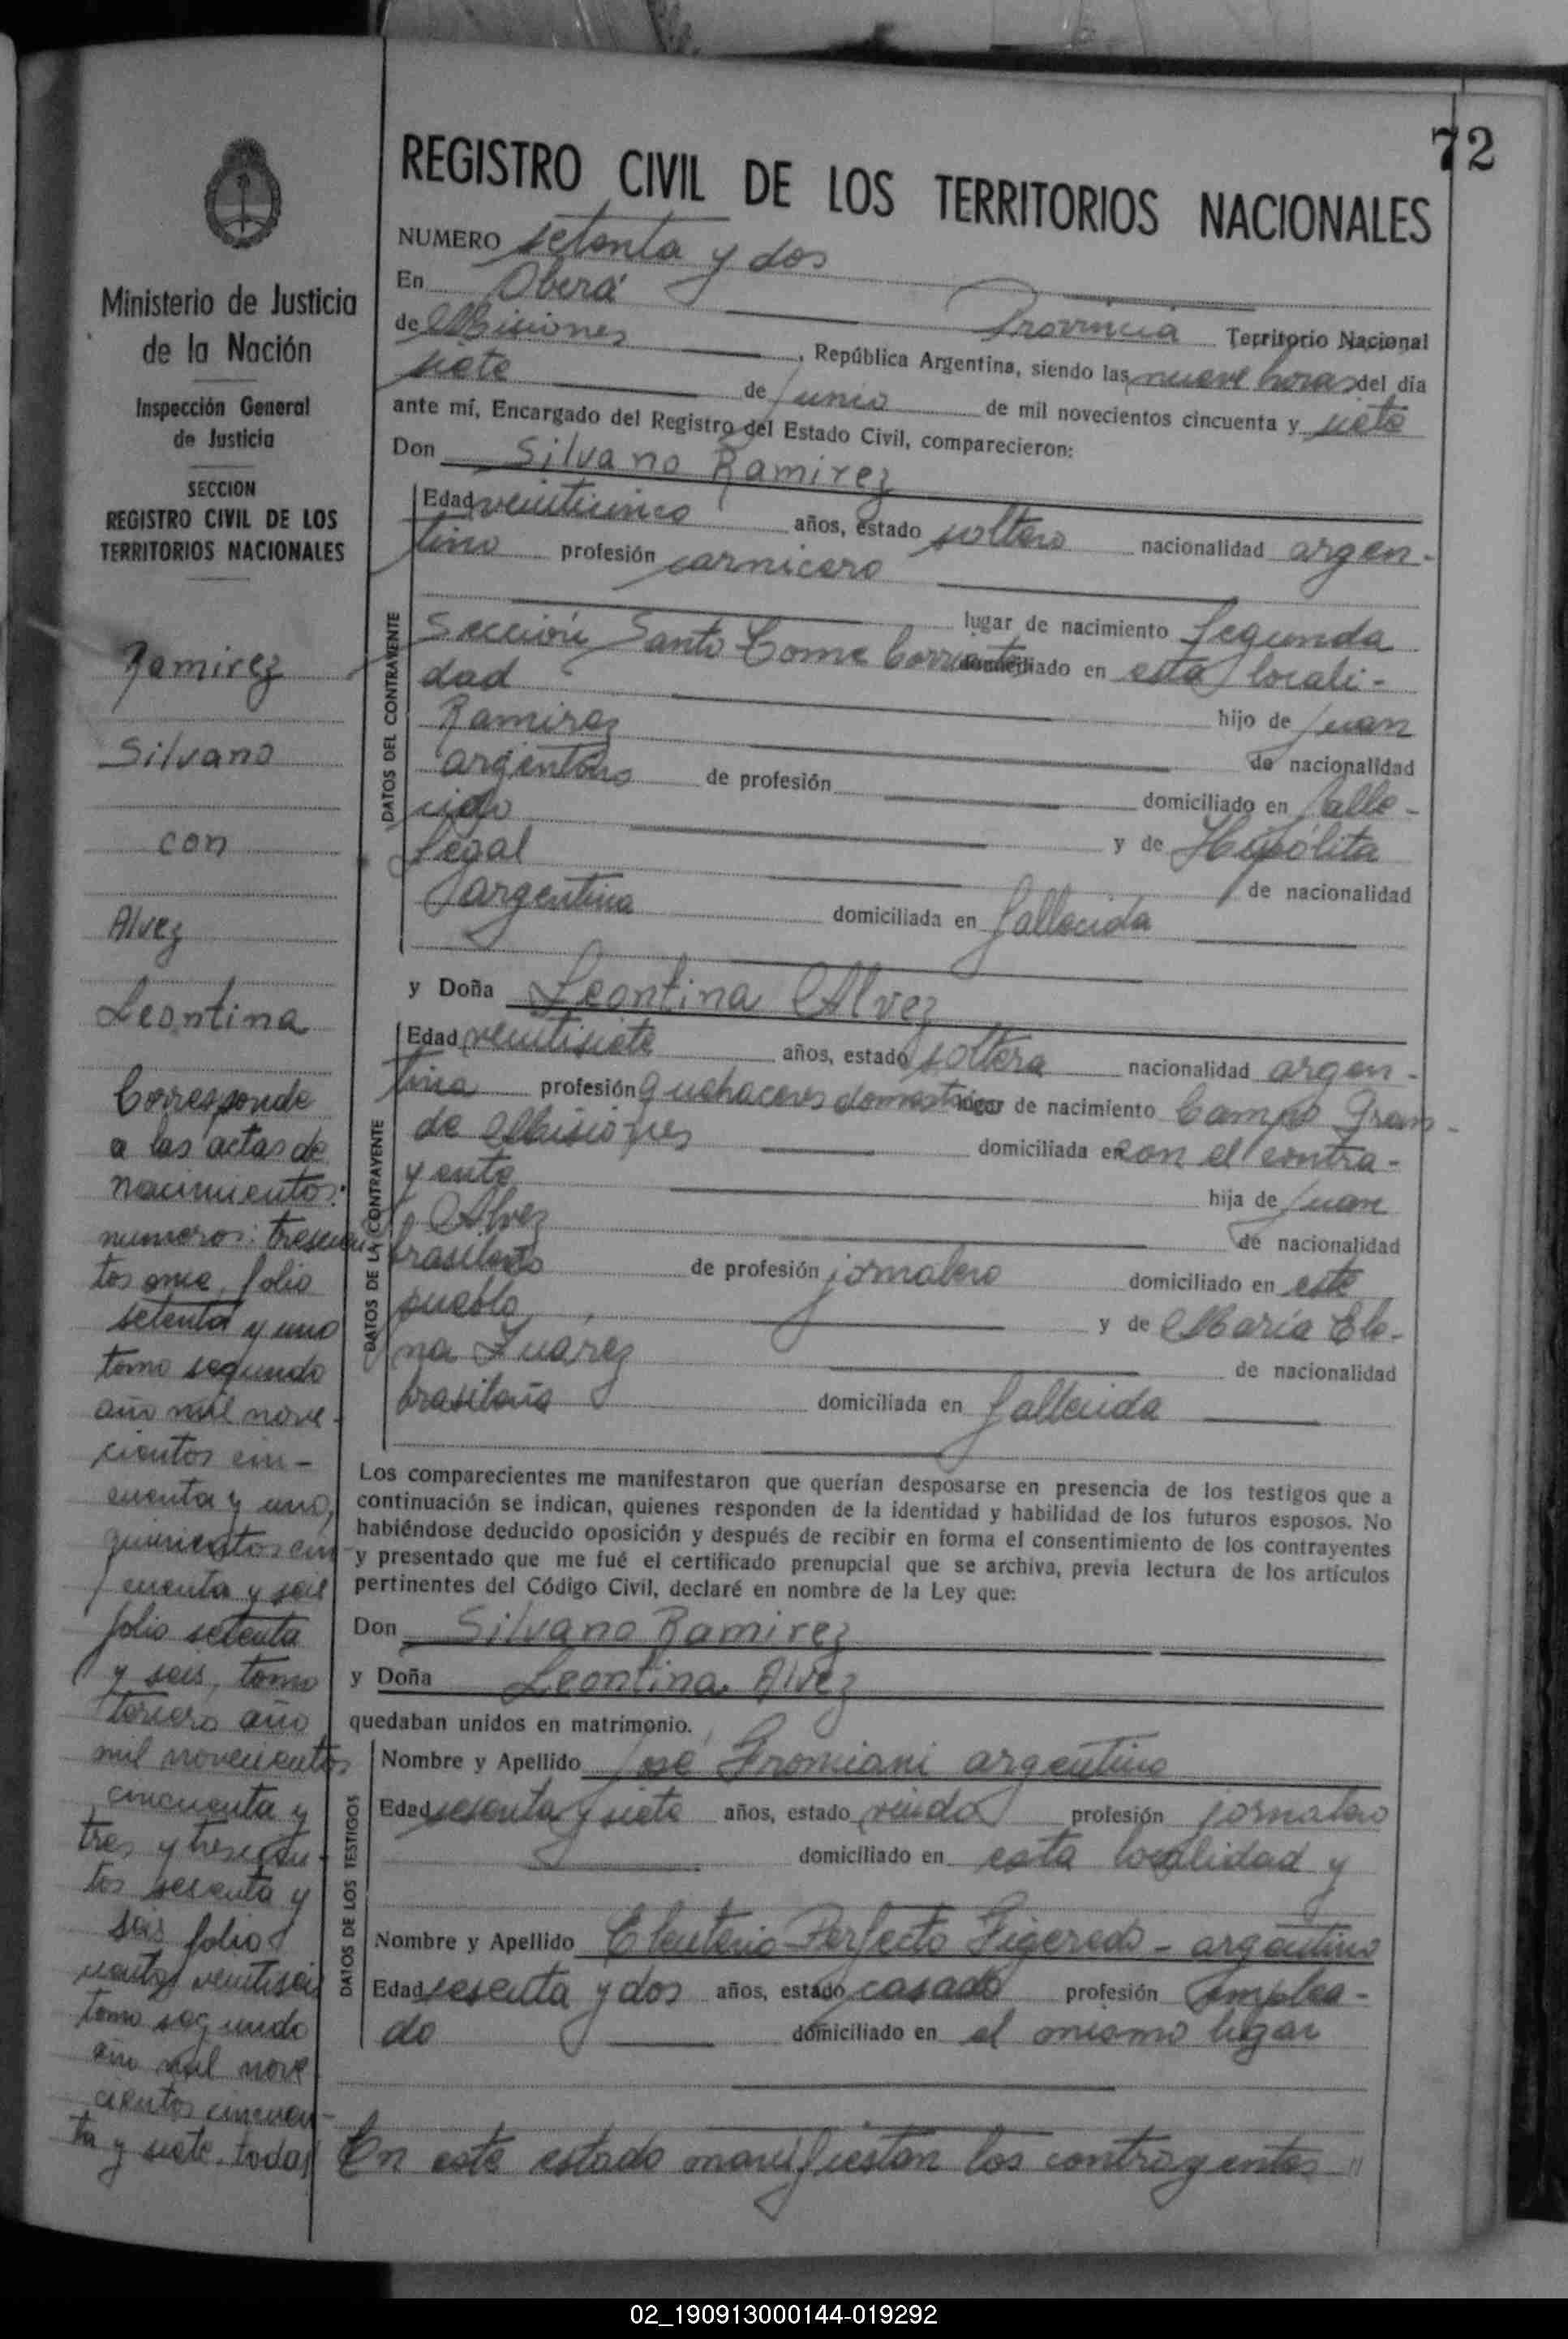 72
REGISTRO CIVIL DE LOS TERRITORIOS NACIONALES
NUMERO setenta y dos
En Oberá
Provincia Territorio Nacional
de Misiones, República Argentina, siendo las nueve horas del día
siete de junio de mil novecientos cincuenta y siete
ante mí, Encargado del Registro del Estado Civil, comparecieron:
Don Silvano Ramirez
Edad veinticinco años, estado soltero nacionalidad argen-
tino profesión carnicero
lugar de nacimiento Segunda
Sección Santo Tome Corrientes domiciliado en esta locali-
dad
hijo de Juan
Ramirez
de nacionalidad
argentino de profesión domiciliado en falle-
cido
y de Hipólita
Legal
de nacionalidad
argentina domiciliada en fallecida
y Doña Leontina Alvez
Edad veintisiete años, estado soltera nacionalidad argen-
tina profesión quehaceres domesticos lugar de nacimiento Campo Gran-
de Misiones domiciliada en con el contra-
yente
hija de Juan
Alvez
de nacionalidad
brasileño de profesión jornalero domiciliado en este
pueblo
y de María Ele-
na Suarez
de nacionalidad
brasileña domiciliada en fallecida
Los comparecientes me manifestaron que querían desposarse en presencia de los testigos que a
continuación se indican, quienes responden de la identidad y habilidad de los futuros esposos. No
habiéndose deducido oposición y después de recibir en forma el consentimiento de los contrayentes
y presentado que me fué el certificado prenupcial que se archiva, previa lectura de los artículos
pertinentes del Código Civil, declaré en nombre de la Ley que:
Don Silvano Ramirez
y Doña Leontina Alvez
quedaban unidos en matrimonio.
Nombre y Apellido José argentino
Edad sesenta y siete años, estado viudo profesión jornalero
domiciliado en esta localidad y
Nombre y Apellido Eleuterio Perfecto Figeredo - argentino
Edad sesenta y dos años, estado casado profesión emplea-
do domiciliado en el mismo lugar
En este estado manifiestan los contrayentes
DATOS DEL CONTRAYENTE
DATOS DE LA CONTRAYENTE
DATOS DE LOS TESTIGOS
Ministerio de Justicia
de la Nación
Inspección General
de Justicia
SECCION
REGISTRO CIVIL DE LOS
TERRITORIOS NACIONALES
Ramirez
Silvano
con
Alvez
Leontina
Corresponde
a las actas de
nacimientos:
numeros: trescien-
tos once, folio
setenta y uno
tomo segundo
año mil nove-
cientos cin-
cuenta y uno,
quinientos cin-
cuenta y seis
folio setenta
y seis, tomo
tercero año
mil novecientos
cincuenta y
tres y trescien-
tos sesenta y
seis folio
ciento veintiseis
tomo segundo
año mil nove
cientos cincuen-
ta y siete. todas
02_190913000144-019292